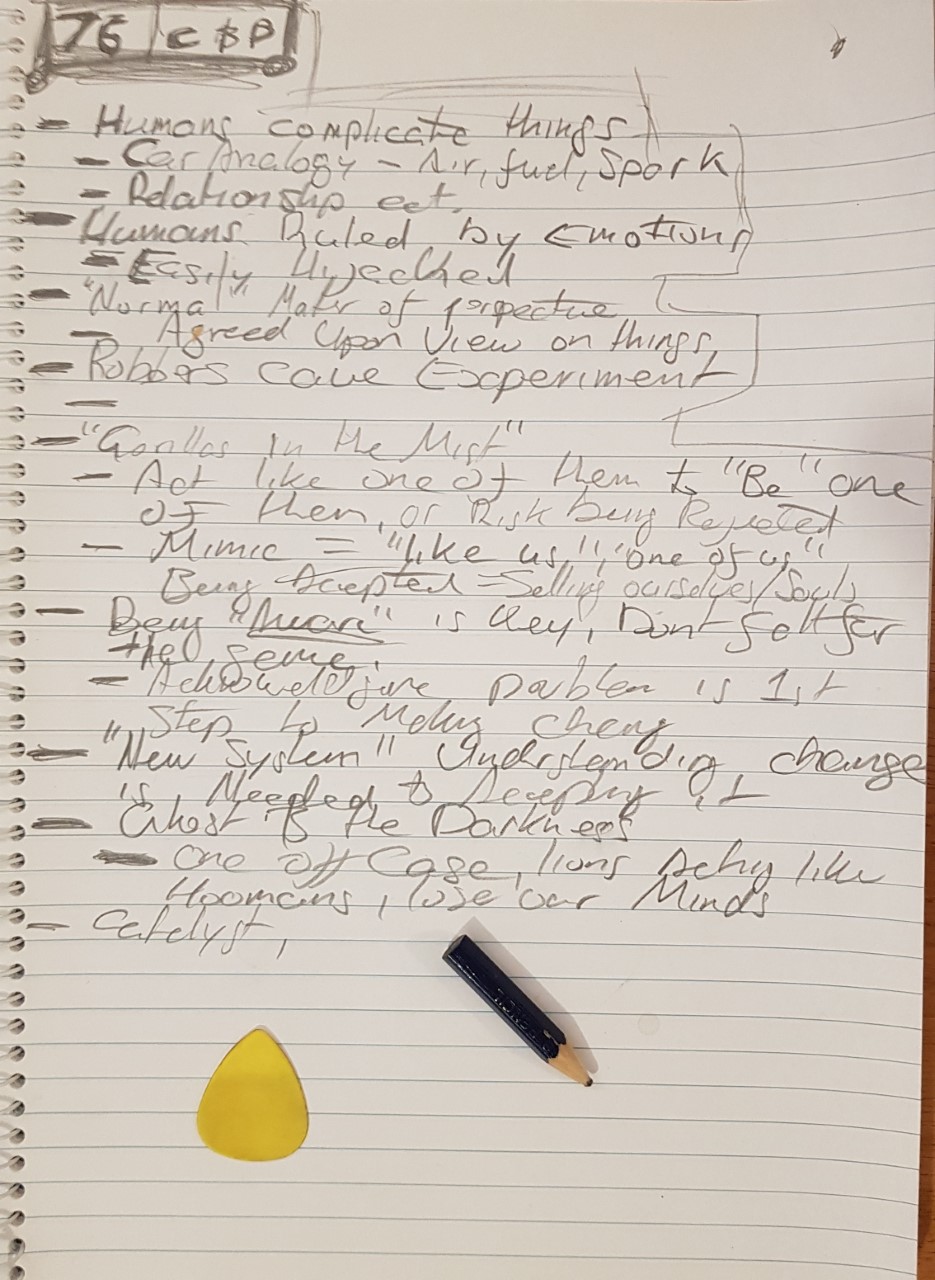 76 C & P
- Humans complicate things
- Car Analogy - Air, fuel, Spark
- Relationship ect.
- Humans Ruled by Emotions
- Easily Hyjecked
- "Normal" Mater of perspective
- Agreed Upon View on things,
- Robbers Cave Experiment
-
- "Gorillas in the Mist"
- Act like one of them to "Be" one
of them, or Risk being Rejected
- Mimic = "like us", "one of us"
Being Accepted = Selling ourselves/Souls
- Being "Aware" is Key, Dont fall for
the
- problem is 1st
Step to Making
- "New System" Understanding, change
is Needed to
- Ghost & the Darkness
- one off Case, lions Acting like
Hoomans, lose our Minds
- Catelyst,